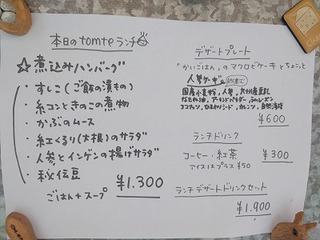 本日のtomteランチ
☆煮込みハンバーグ
・すしこ(ご飯の漬もの)
・糸コンときのこの煮物
・かぶのムース
・紅くるり(大根)のサラダ
・人参とインゲンの揚げサラダ
・秘伝豆
ごはん+スープ ¥1.300
デザートプレート
"かいごはん"のマクロビケーキとちょこっと
人参ケーキ
国産小麦粉,人参,
なたね油,アーモンドパウダー,
ココナッツ, 自然海塩
¥600
ランチドリンク
コーヒー・紅茶 ¥300
アイスはプラス¥50
ランチデザートドリンクセット
¥1.900